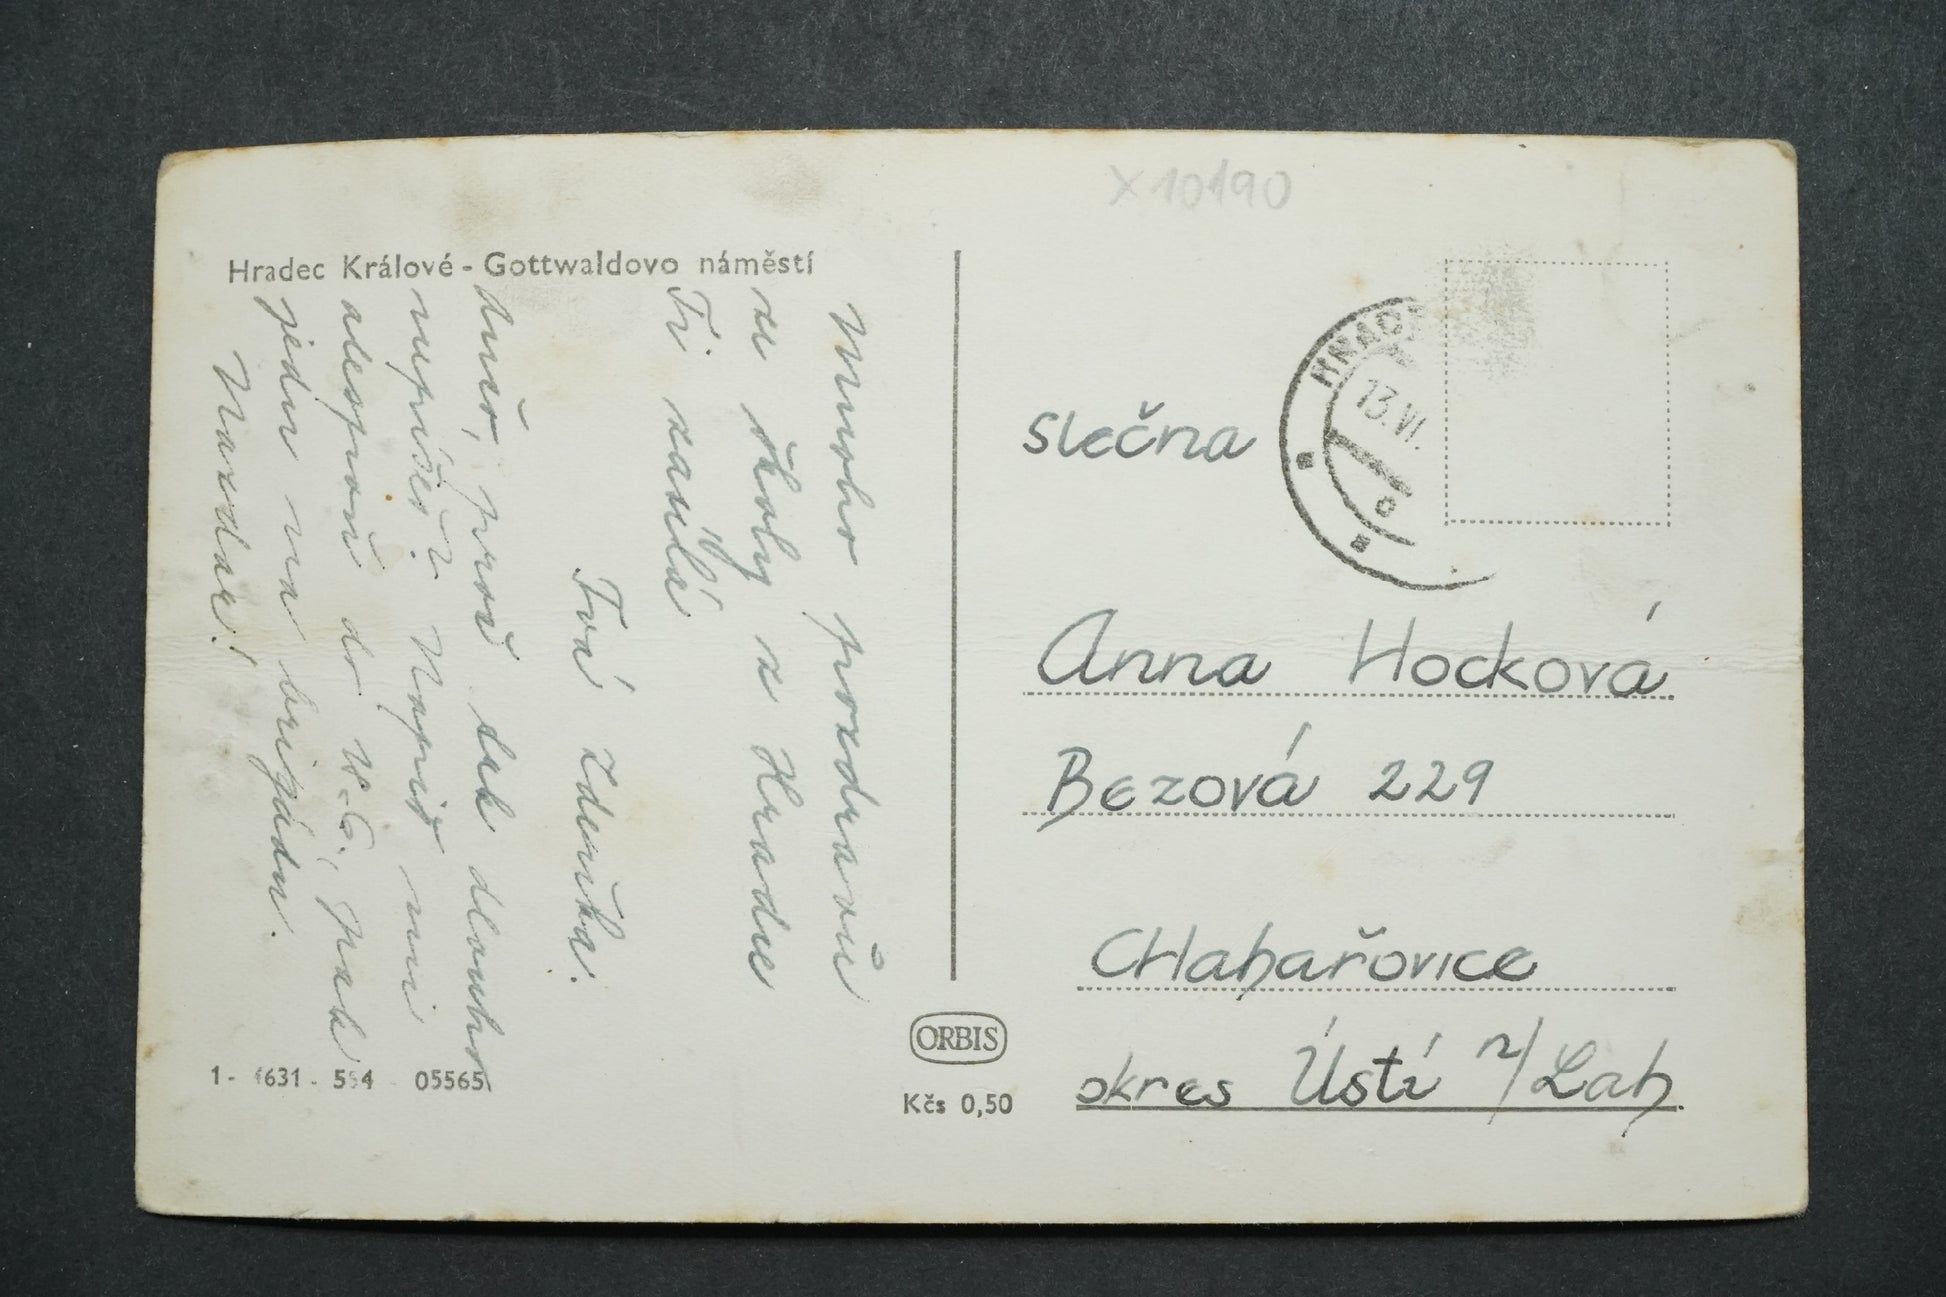 X10190
Hradec Králové - Gottwaldovo náměstí
Mnoho pozdravů
ze školy z Hradce
Ti zasílá
Tvá Zdeňka.
proč tak dlouho
nepíšeš? Napiš mi
alespoň do
jedu na brigádu.
Nazdar!
1- 1631 - 554 - 05565
ORBIS
Kčs 0,50
13.VI.
slečna
Anna Hocková
Bezová 229
CHabařovice
okres Ústí n/Lab.